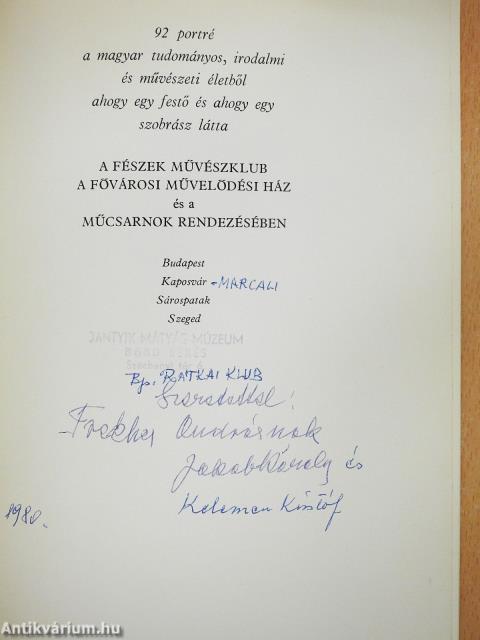 92 portré
a magyar tudományos, irodalmi
és művészeti életből
ahogy egy festő és ahogy egy
szobrász látta
A FÉSZEK MŰVÉSZKLUB
A FŐVÁROSI MŰVELŐDÉSI HÁZ
és a
MŰCSARNOK RENDEZÉSÉBEN
Budapest
Kaposvár - MARCALI
Sárospatak
Szeged
JANTYIK MÁTYÁS MÚZEUM
BÉKÉS
Széchenyi tér 6.
Bp. RÁTKAI KLUB
Szeretettel!
Andrásnak
Jakab Károly és
Kelemen Kristóf
1980.
Antikvárium.hu